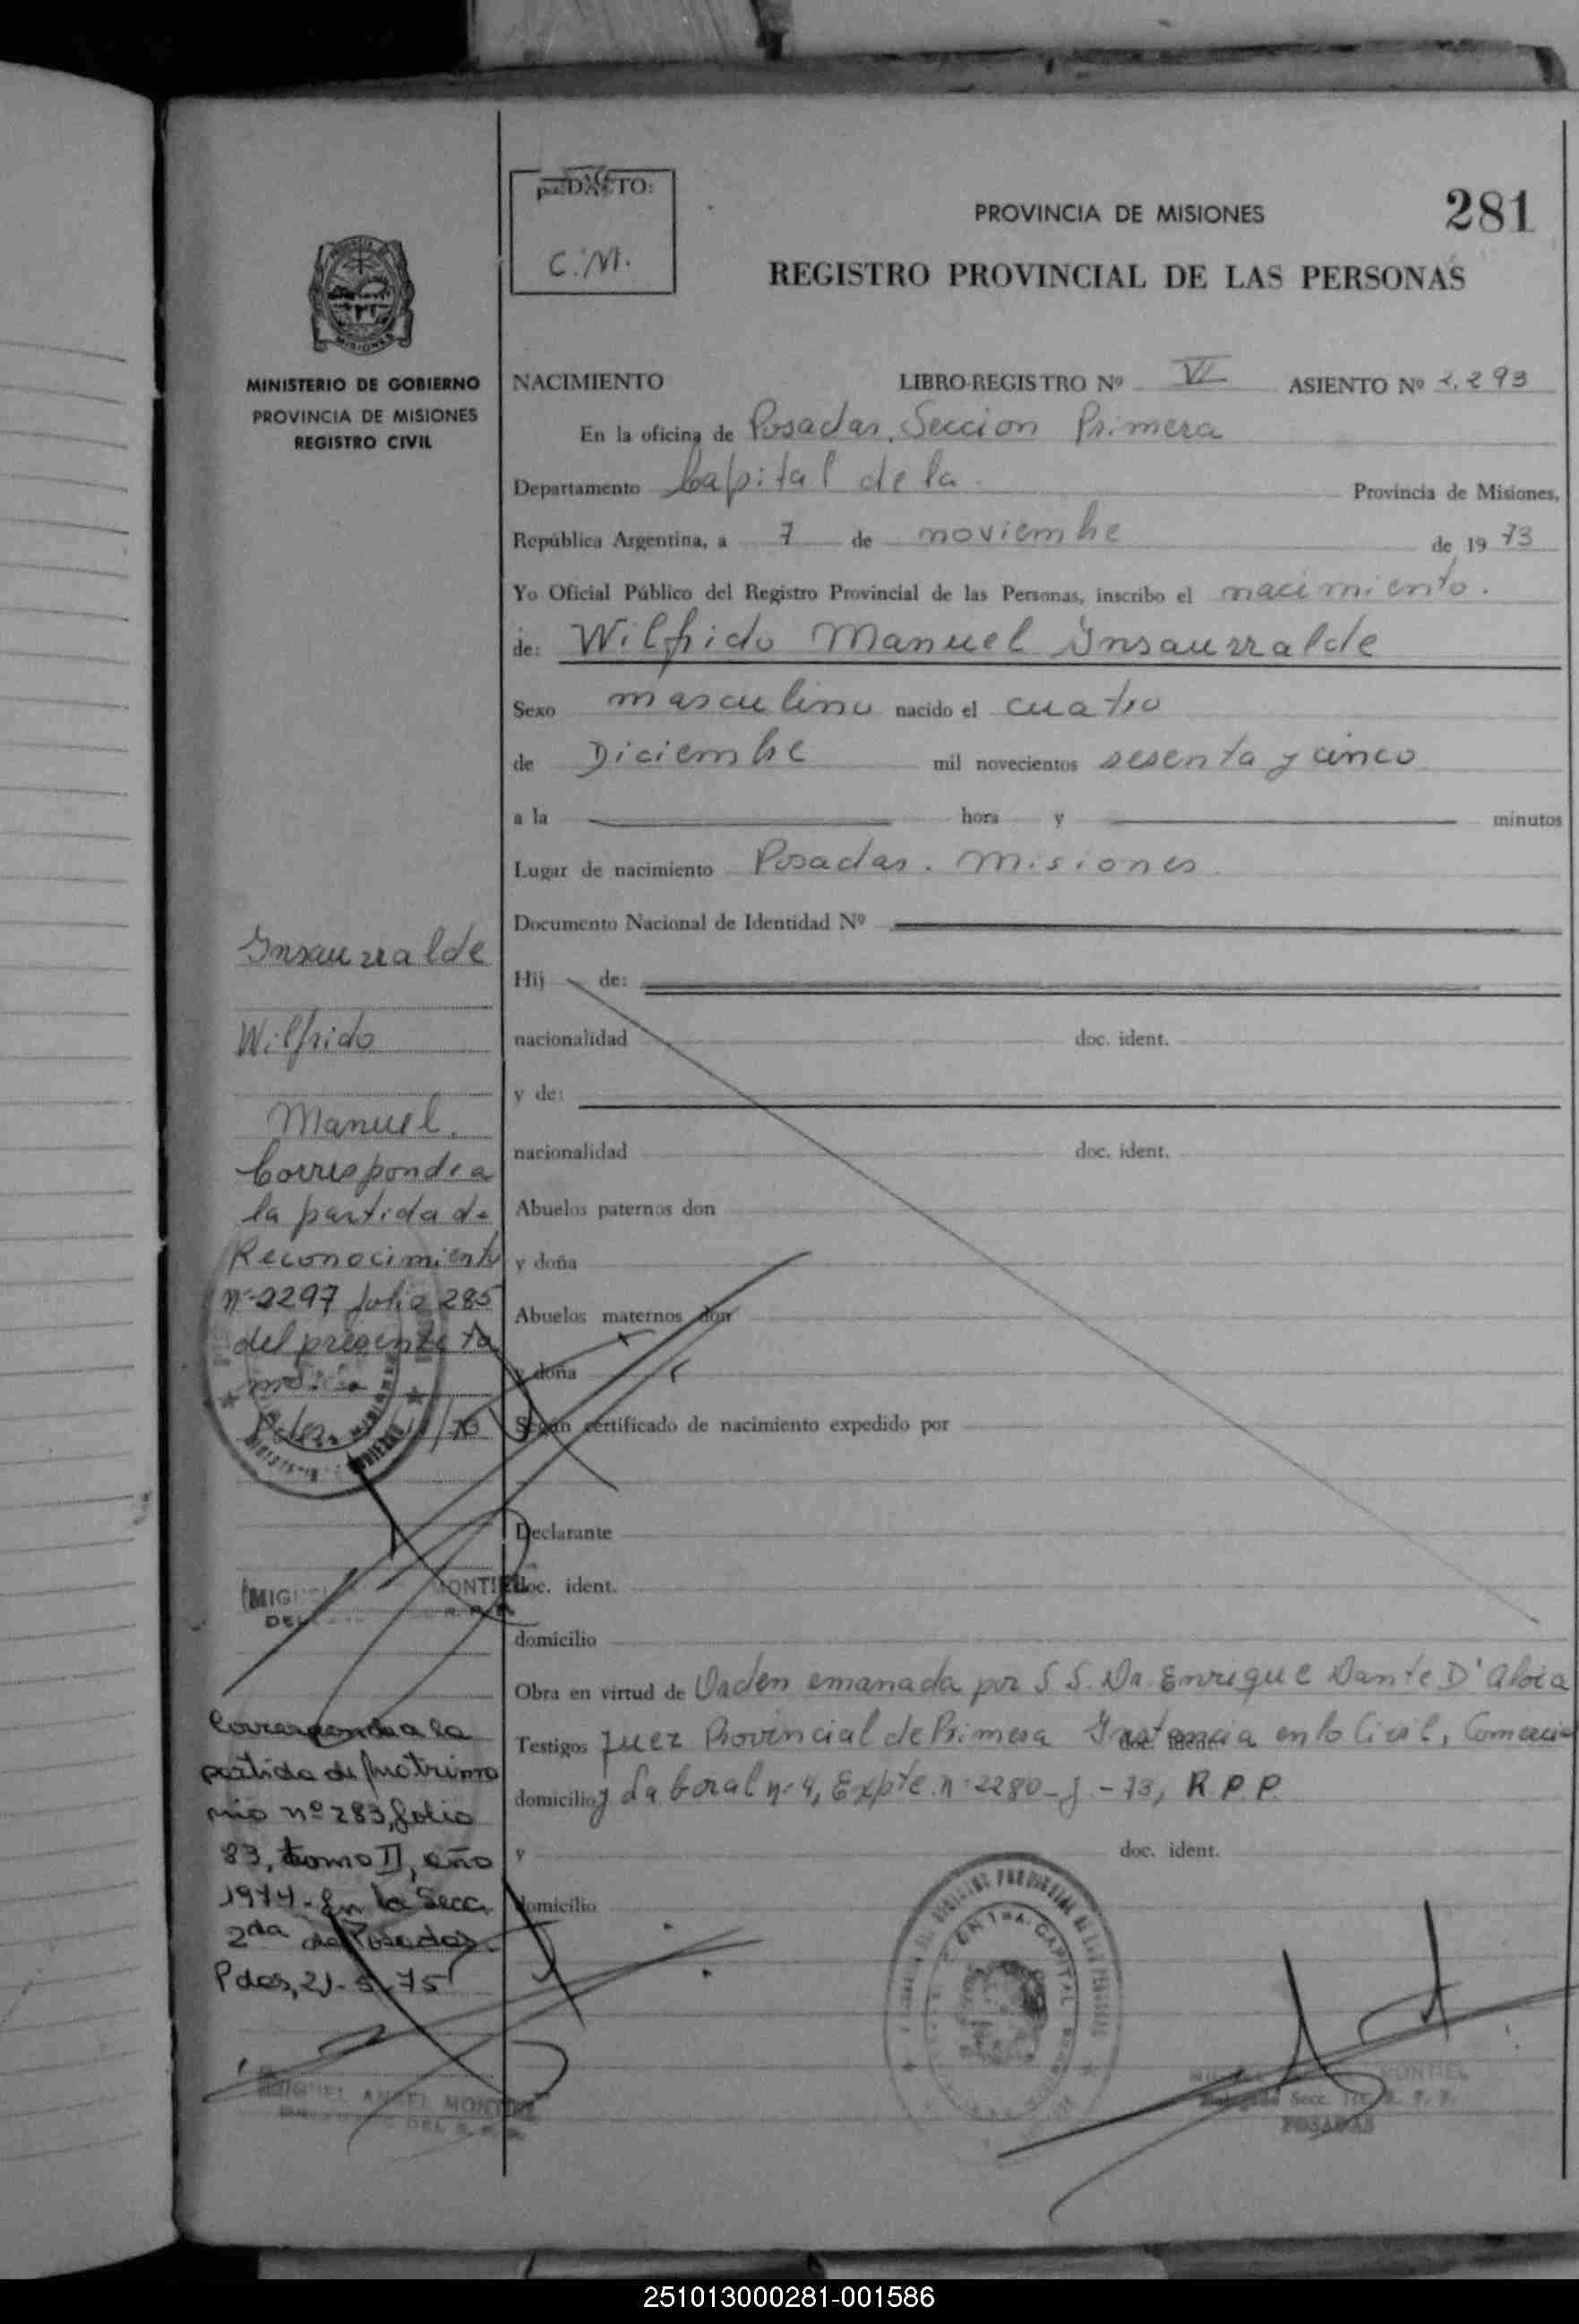 281
REDACTO:
C.M.
PROVINCIA DE MISIONES
REGISTRO PROVINCIAL DE LAS PERSONAS
MISIONES
MINISTERIO DE GOBIERNO
PROVINCIA DE MISIONES
REGISTRO CIVIL
NACIMIENTO LIBRO-REGISTRO Nº VI ASIENTO Nº 2.293
En la oficina de Posadas, Seccion Primera
Departamento Capital de la Provincia de Misiones,
República Argentina, a 7 de noviembre de 1973
Yo Oficial Público del Registro Provincial de las Personas, inscribo el nacimiento.
de: Wilfrido Manuel Insaurralde
Sexo masculino nacido el cuatro
de Diciembre mil novecientos sesenta y cinco
a la hora y minutos
Lugar de nacimiento Posadas. Misiones
Documento Nacional de Identidad Nº
Hij de:
nacionalidad doc. ident.
y de:
nacionalidad doc. ident.
Abuelos paternos don
y doña
Abuelos maternos don
y doña
Según certificado de nacimiento expedido por
Declarante
doc. ident.
domicilio
Obra en virtud de Orden emanada por S.S. Dr. Enrique Dante D'Aloia
Testigos Juez Provincial de Primera Instancia en lo Civil, Comercial
domicilio y Laboral nº 4, Expte. nº 2280-J-73, R.P.P.
y doc. ident.
domicilio
Insaurralde
Wilfrido
Manuel.
Corresponde a
la partida de
Reconocimiento
nº 2297 folio 285
del presente to
mo
MONTIEL
Corresponde a la
partida de Matrimo
nio nº 283, folio
83, tomo II, año
1974. En la Secc.
2da de Posadas.
Pdas, 21-5-75
MIGUEL ANGEL MONTIEL
DEL R.P.P.
MONTIEL
Delegado Secc. 1ra. R. P. P.
POSADAS
251013000281-001586